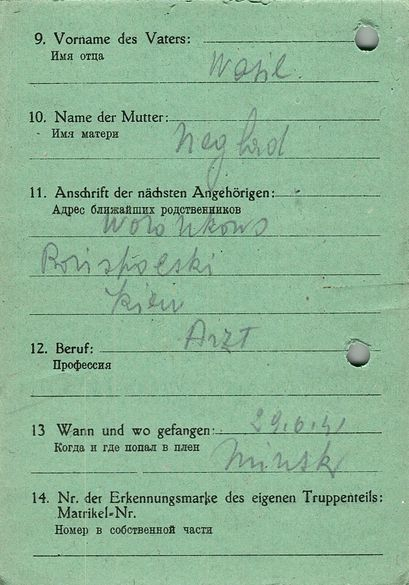 9. Vorname des Vaters:
Имя отца
Wasil.
10. Name der Mutter:
Имя матери
11. Anschrift der nächsten Angehörigen:
Адрес ближайших родственников
Woronkowo
Borispolski
Kiew
Arzt
12. Beruf:
Профессия
13 Wann und wo gefangen: 29.6.41
Когда и где попал в плен
Minsk
14. Nr. der Erkennungsmarke des eigenen Truppenteils:
Matrikel-Nr.
Номер в собственной части